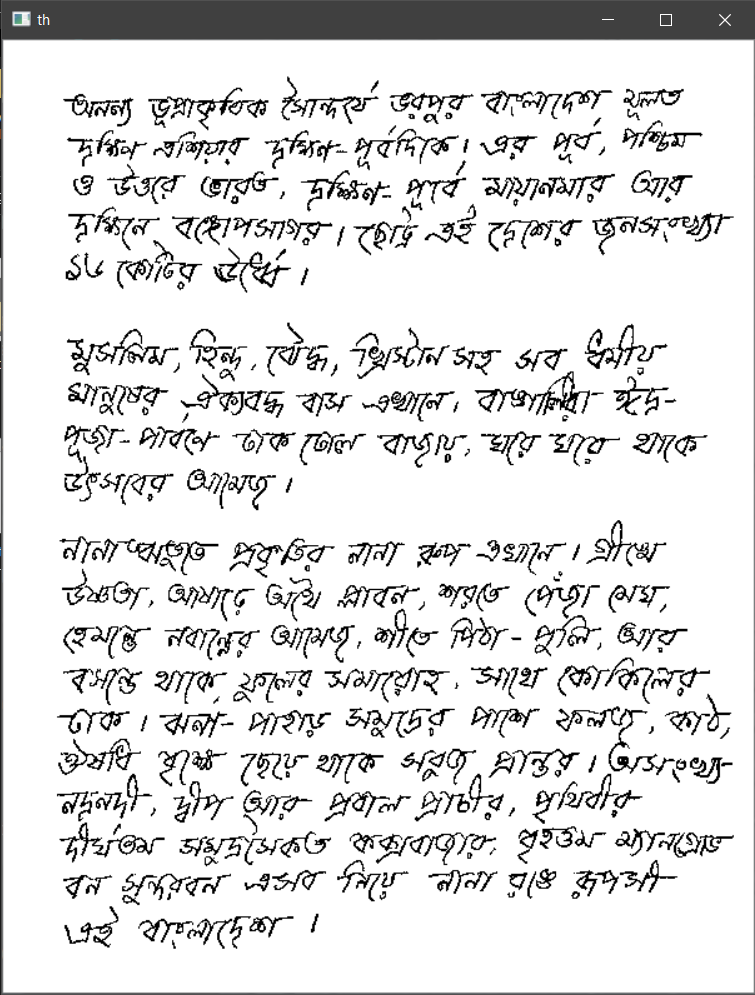 th
অনন্য ভূপ্রাকৃতিক সৌন্দর্যে ভরপুর বাংলাদেশ মূলত
দক্ষিণ এশিয়ার দক্ষিণ-পূর্বদিকে। এর পূর্ব, পশ্চিম
ও উত্তরে ভারত, দক্ষিণ-পূর্বে মায়ানমার আর
দক্ষিনে বঙ্গোপসাগর। ছোট্ট এই দেশের জনসংখ্যা
১৬ কোটির ঊর্ধ্বে।
মুসলিম, হিন্দু, বৌদ্ধ, খ্রিস্টান সহ সব ধর্মীয়
মানুষের ঐক্যবদ্ধ বাস এখানে। বাঙালিরা ঈদ-
পূজা-পার্বণে ঢাক ঢোল বাজায়, ঘরে ঘরে থাকে
উৎসবের আমেজ।
নানা ঋতুতে প্রকৃতির নানা রুপ এখানে। গ্রীষ্মে
উষ্ণতা, আষাঢ়ে অথৈ প্লাবন, শরতে পেঁজা মেঘ,
হেমন্তে নবান্নের আমেজ, শীতে পিঠা-পুলি, আর
বসন্তে থাকে ফুলের সমারোহ, সাথে কোকিলের
ডাক। ঝর্না-পাহাড় সমুদ্রের পাশে ফলজ, কাঠ,
ঔষধি বৃক্ষে ছেয়ে থাকে সবুজ প্রান্তর। অসংখ্য
নদনদী, দ্বীপ আর প্রবাল প্রাচীর, পৃথিবীর
দীর্ঘতম সমুদ্রসৈকত কক্সবাজার, বৃহত্তম ম্যানগ্রোভ
বন সুন্দরবন এসব নিয়ে নানা রঙে রূপসী
এই বাংলাদেশ।